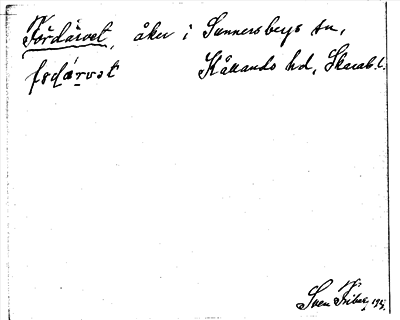 Fördärvet, åker i Sunnersbergs sn,
fɷdárvət Kållands hd, Skarab. l.
Sven Friberg 195.